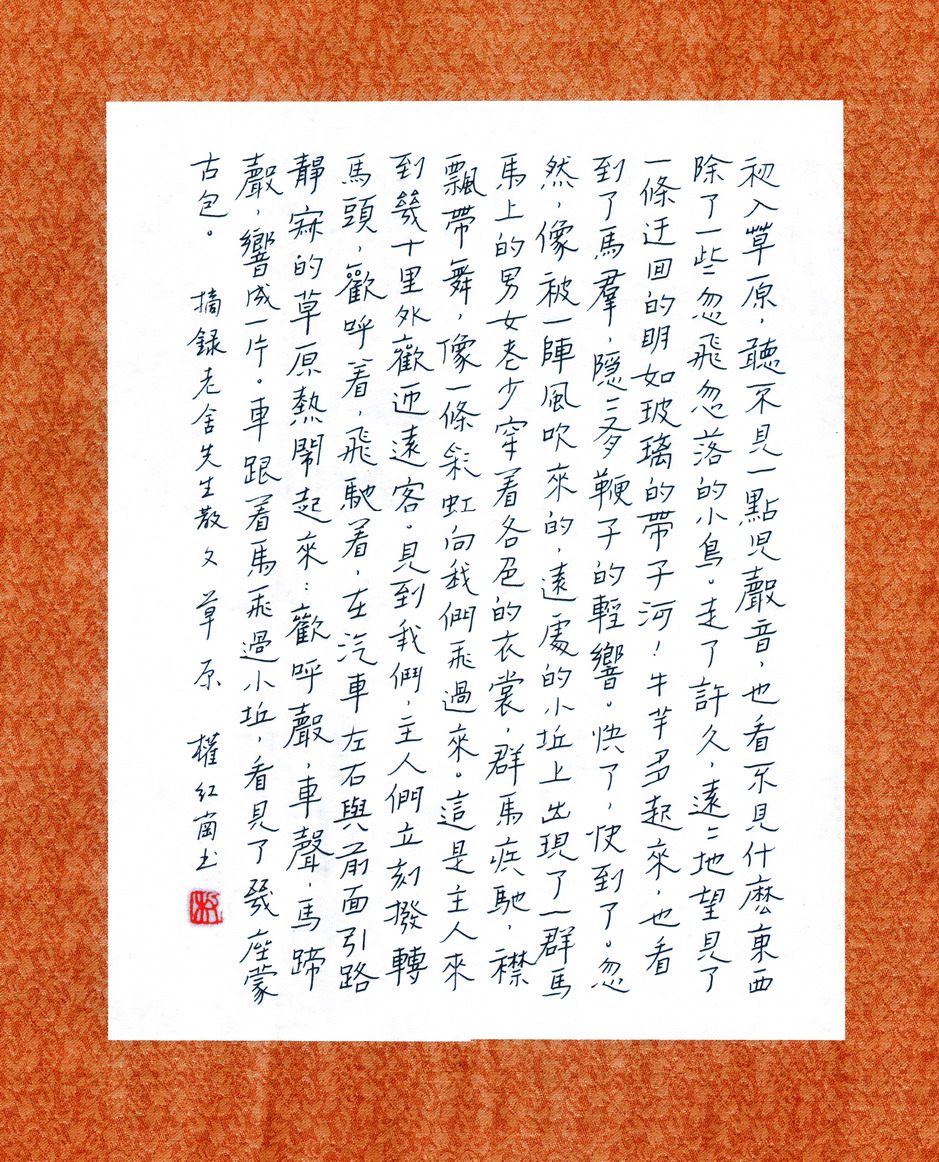 初入草原，聽不見一點兒聲音，也看不見什麽東西
除了一些忽飛忽落的小鳥。走了許久，遠〻地望見了
一條迂回的明如玻璃的帶子河！牛羊多起來，也看
到了馬羣，隱〻有鞭子的輕響。快了，快到了。忽
然，像被一陣風吹來的，遠處的小丘上出現了一群馬
馬上的男女老少穿着各色的衣裳，群馬疾馳，襟
飄帶舞，像一條彩虹向我們飛過來。這是主人來
到幾十里外歡迎遠客。見到我們，主人們立刻撥轉
馬頭，歡呼着，飛馳着，在汽車左右與前面引路
靜寂的草原熱鬧起來：歡呼聲，車聲，馬蹄
聲，響成一片。車跟着馬飛過小丘，看見了幾座蒙
古包。 摘録老舍先生散文草原 權紅南书